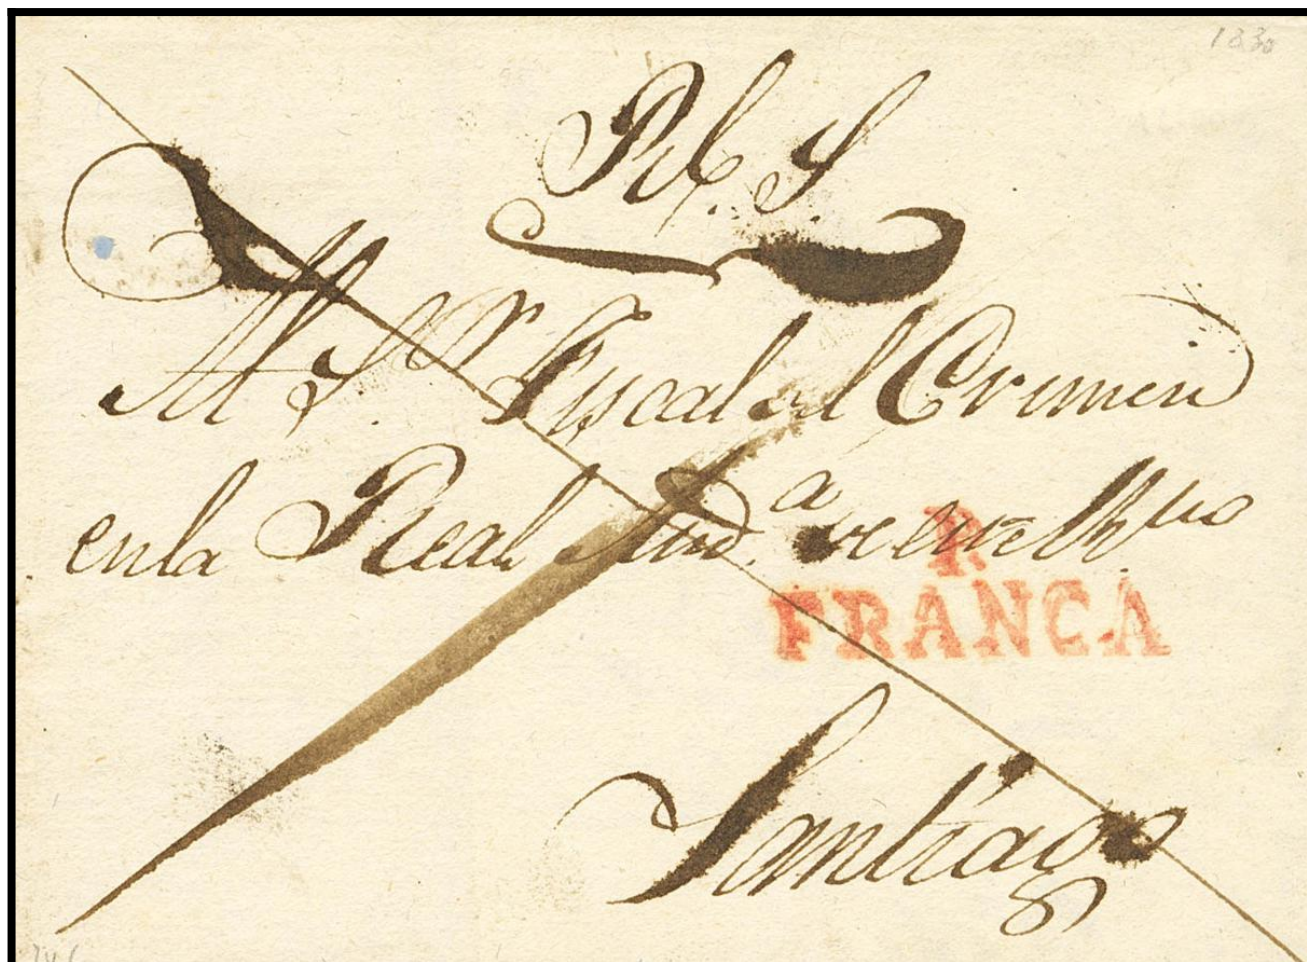 1830
Rl. S.
Al Sr. Fiscal del Crimen
en la Real Aud.a de este
R.
FRANCA
Santiago